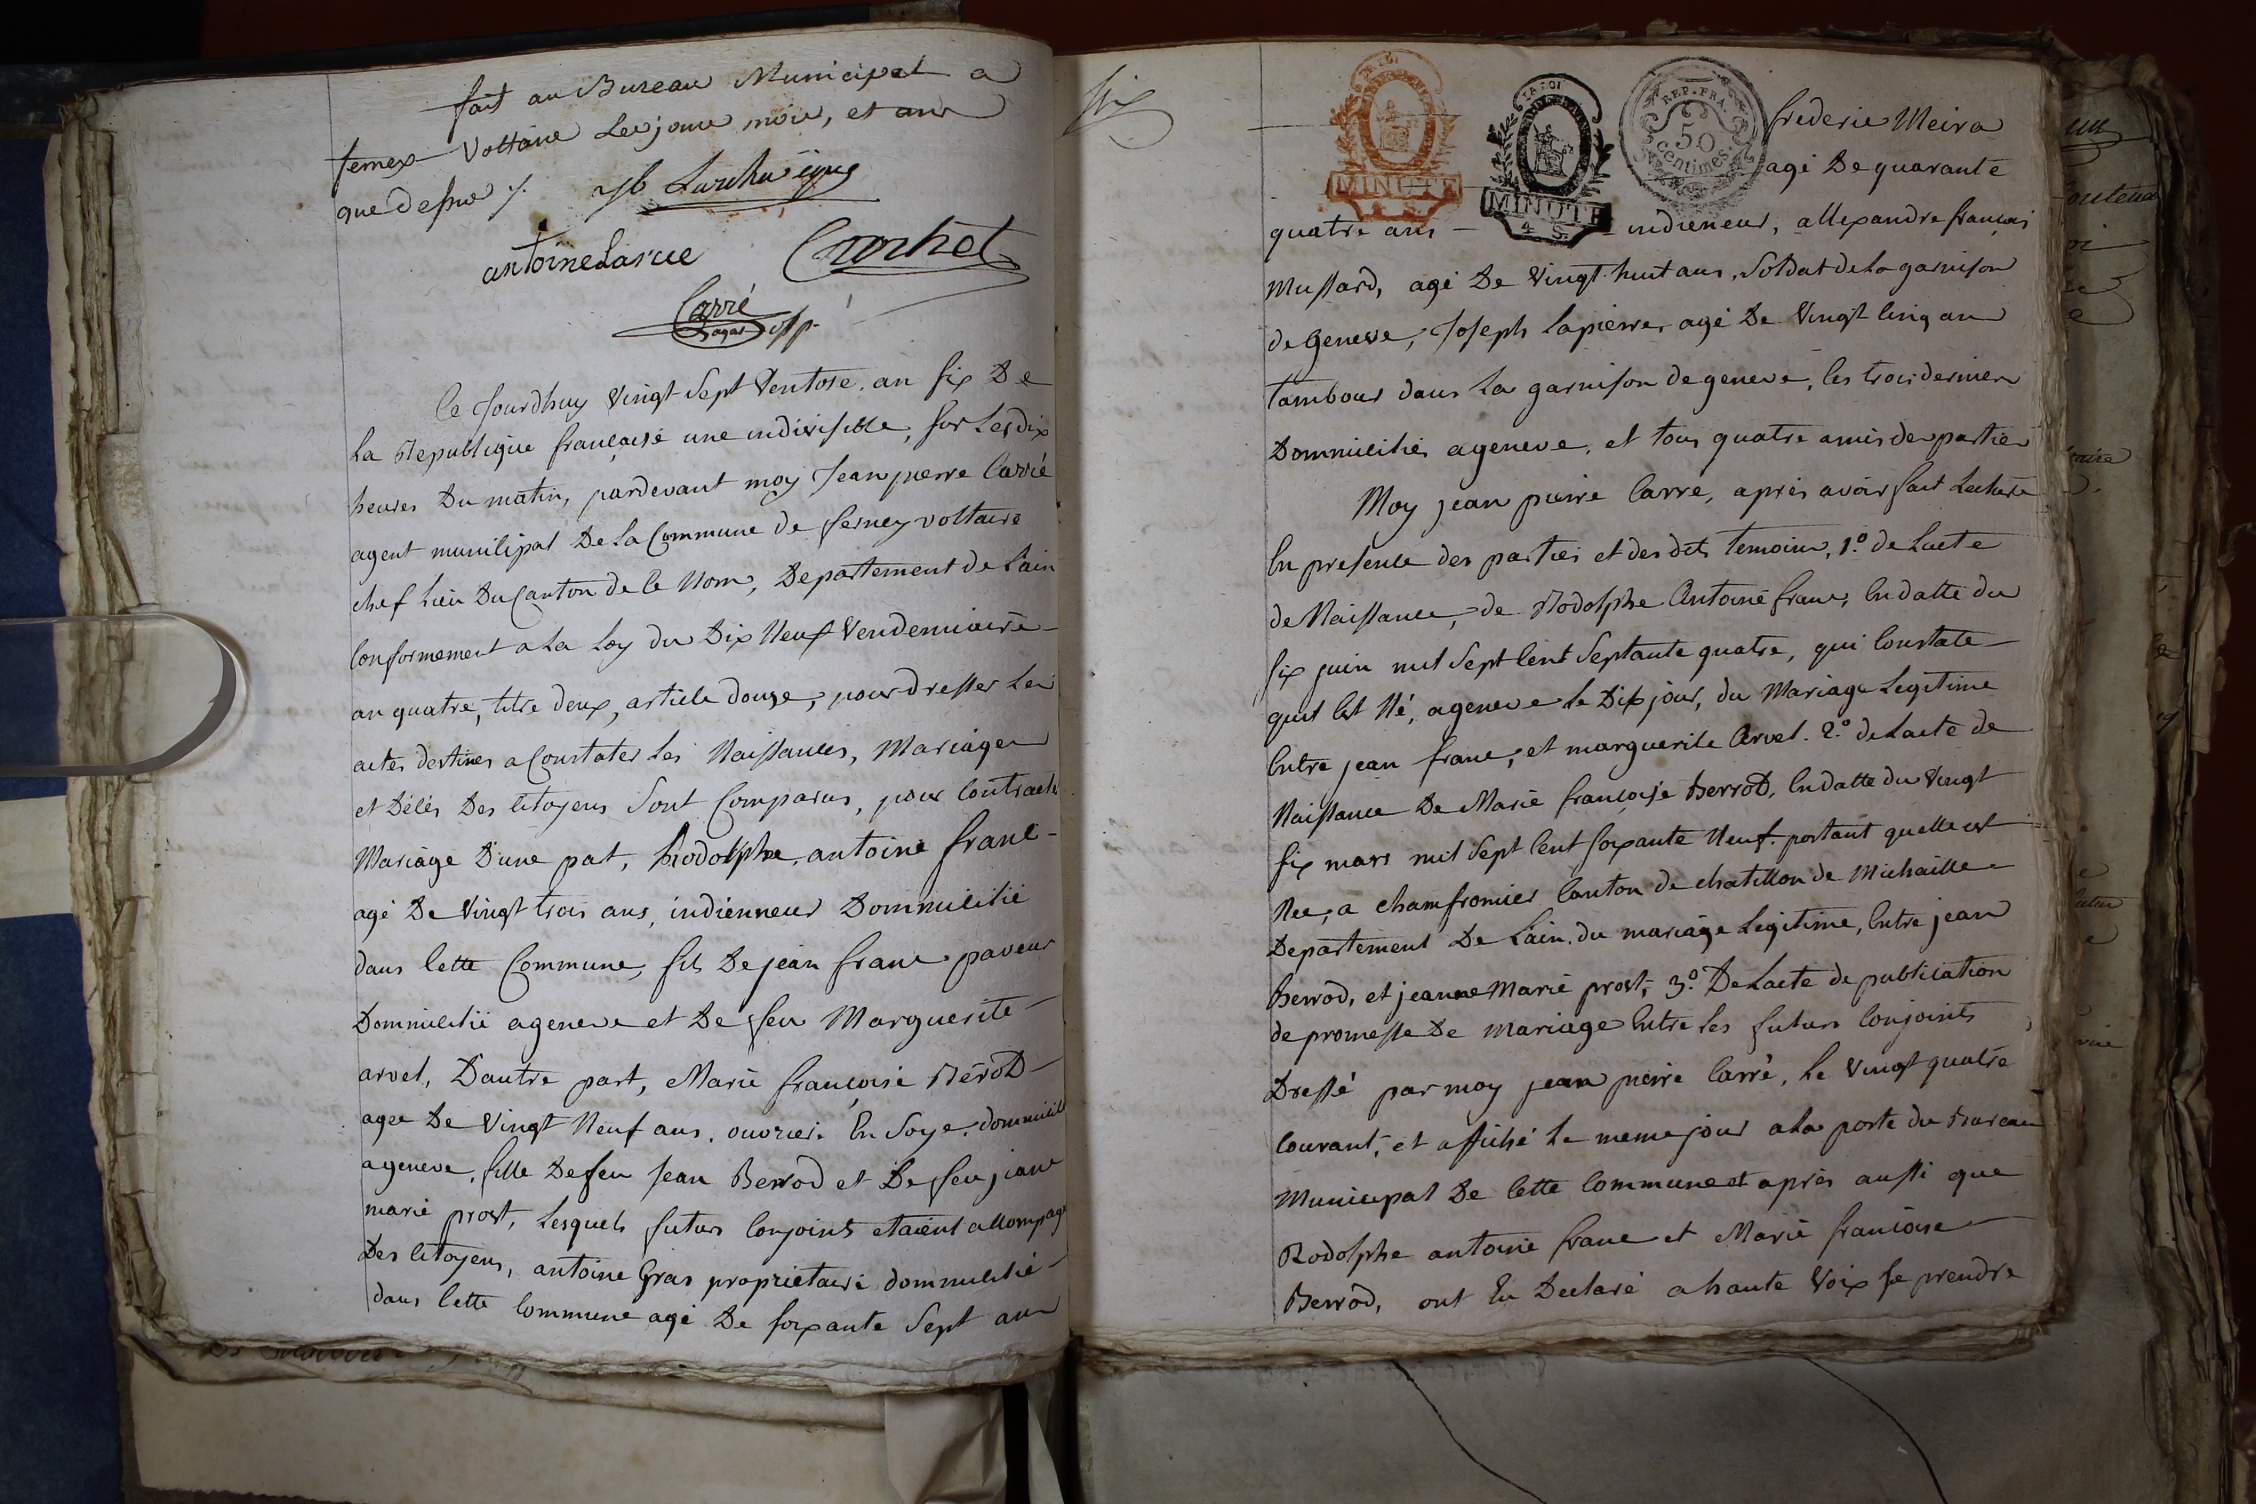 fait au Bureau Municipal a
fernex Voltaire Les jour mois, et an
que dessus ./.
antoine Larue
Crochet
Carré
agent
Ce Jourdhuy Vingt Sept Ventose. an six De
La Republique francaise une indivisible, sur Les dix
heures Du matin, pardevant moy Jean pierre Carré
agent municipal De La Commune de ferney voltaire
chef lieu Du Canton de Ce Nom, Departement de L'ain
Conformement a La Loy du Dix Neuf Vendemiaire
an quatre, titre deux, article douze, pour dresser Les
actes destinés a Constater Les Naissances, Mariages
et Décés Des Citoyens Sont Comparus, pour Contracter
Mariage D'une pat, Rodolphe, antoine franc
agé De Vingt trois ans, indienneur Dommicilié
dans Cette Commune, fils De jean franc paveur
Dommicilié a geneve et De feu Marguerite
arvel, D'autre part, Marie françoise Bérod
agee De Vingt Neuf ans, ouvriere En Soye, dommicilié
a geneve, fille De feu Jean Berrod et De feu jeane
marie prost, Lesquels futurs Conjoints etaient accompagé
Des Citoyens, antoine Gras proprietaire dommicilié
dans Cette Commune agé De soixante Sept ans
Six
REP. FRA.
50
centimes.
MINUTE
MINUTE
4 S.
frederic Meira
agé De quarante
quatre ans — indieneur, allexandre francois
Mussard, agé De Vingt huit ans, Soldat de La garnison
de Geneve, Joseph Lapierre, agé De Vingt Cinq ans
tambour dans La garnison de geneve, les trois dernier
Dommiciliés a geneve, et tous quatre amis des parties
Moy jean pierre Carre, après avoir fait Lecture
En presence des parties et des dits temoins, 1.º de Lacte
de Naissance, de Rodolphe Antoine franc, En datte du
six juin mil Sept Cent Septante quatre, qui Constate
quil Est Né, a geneve le Dit jour, du Mariage Legitime
Entre jean franc, et marguerite Arvel. 2.º de Lacte de
Naissance De Marie françoise Berrod, En datte du Vingt
six mars mil Sept Cent soixante Neuf. portant quelle est
Nee, a chamfromier Canton de chatillon de Michaille
Departement De L'ain. du mariage Legitime, Entre jean
Berrod, et jeanne Marie prost, 3.º De Lacte de publication
de promesse De mariage Entre les futurs Conjoints
Dressé par moy jean pierre Carré, le Vingt quatre
Courant, et affiché le meme jour a La porte du Bureau
Municipal De Cette Commune et après aussi que
Rodolphe antoine franc et Marie francoise
Berrod, ont Eu Declaré a haute Voix se prendre